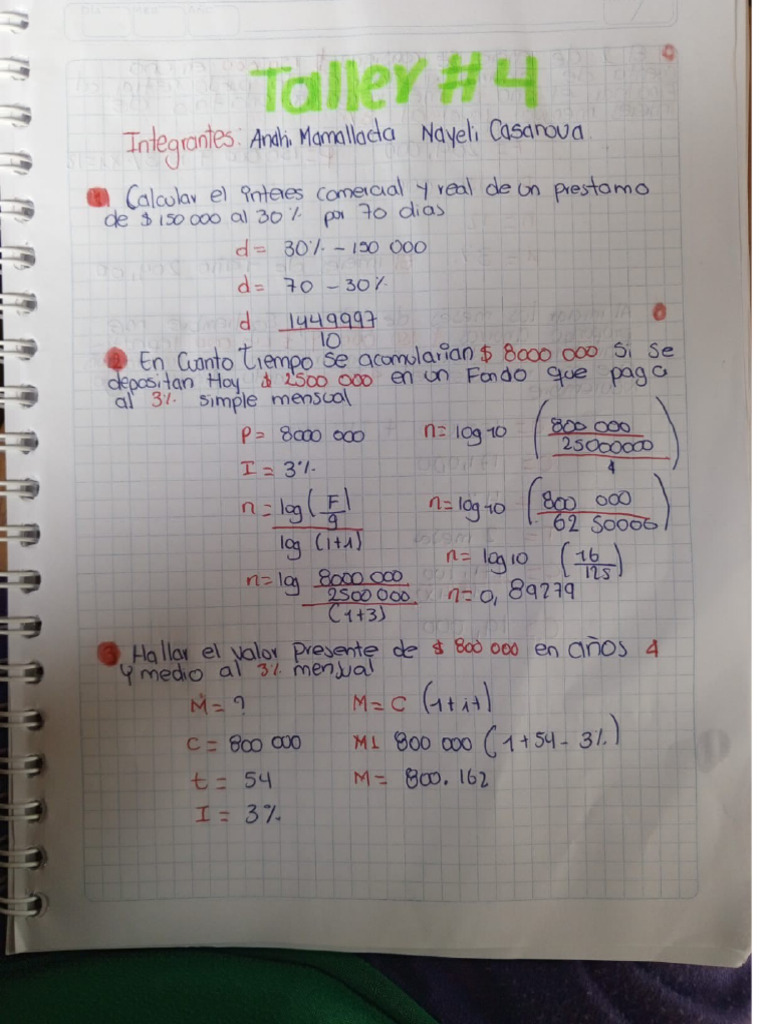 Taller #4
Integrantes: Anahi Mamallacta Nayeli Casanova
1 Calcular el interes comercial y real de un prestamo
de $ 150 000 al 30% por 70 dias
d= 30% - 150 000
d= 70 - 30%
d 1449997
10
2 En Cuanto tiempo se acomularian $ 8000 000 Si se
depositan Hoy $ 2500 000 en un Fondo que paga
al 3% simple mensual
P= 8000 000 n= log 10 (800 000
25000000)
1
I = 3%
n = log (F/9) n= log 10 (800 000
log (1+1) 62 50000)
n= log 10 (16/125)
n= log 8000 000
2500 000 n= 0, 89279
(1+3)
3 Hallar el valor presente de $ 800 000 en años 4
y medio al 3% mensual
M= ? M= C (1+it)
C = 800 000 M= 800 000 (1+54- 3%)
t = 54 M= 800.162
I = 3%